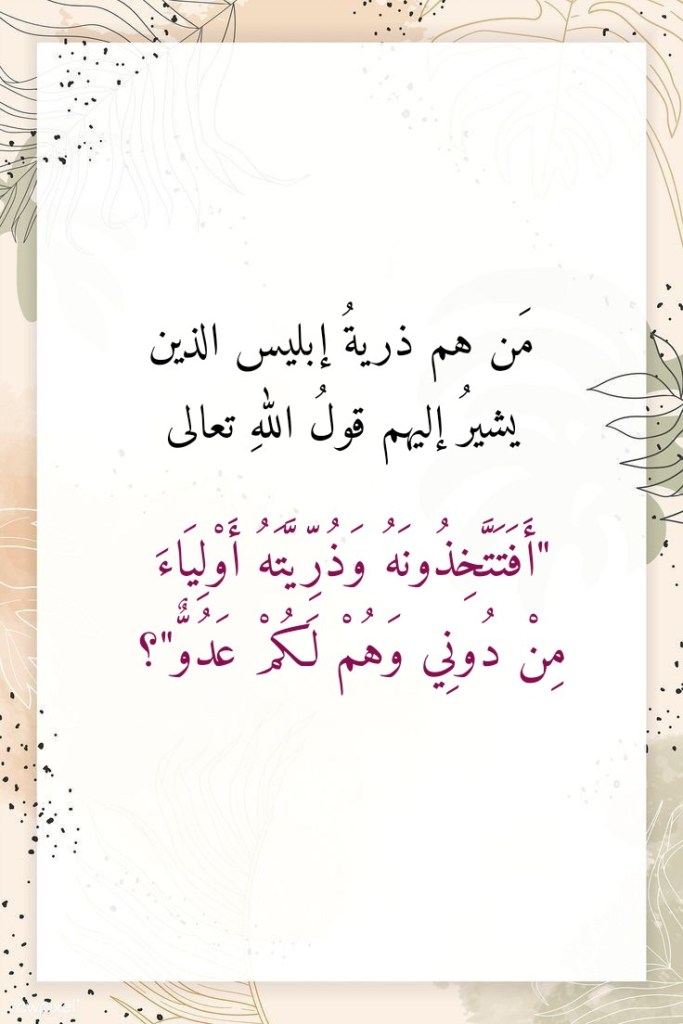 مَن هم ذريةُ إبليس الذين
يشيرُ إليهم قولُ اللهِ تعالى
"أَفَتَتَّخِذُونَهُ وَذُرِّيَّتَهُ أَوْلِيَاءَ
مِنْ دُونِي وَهُمْ لَكُمْ عَدُوٌّ"؟